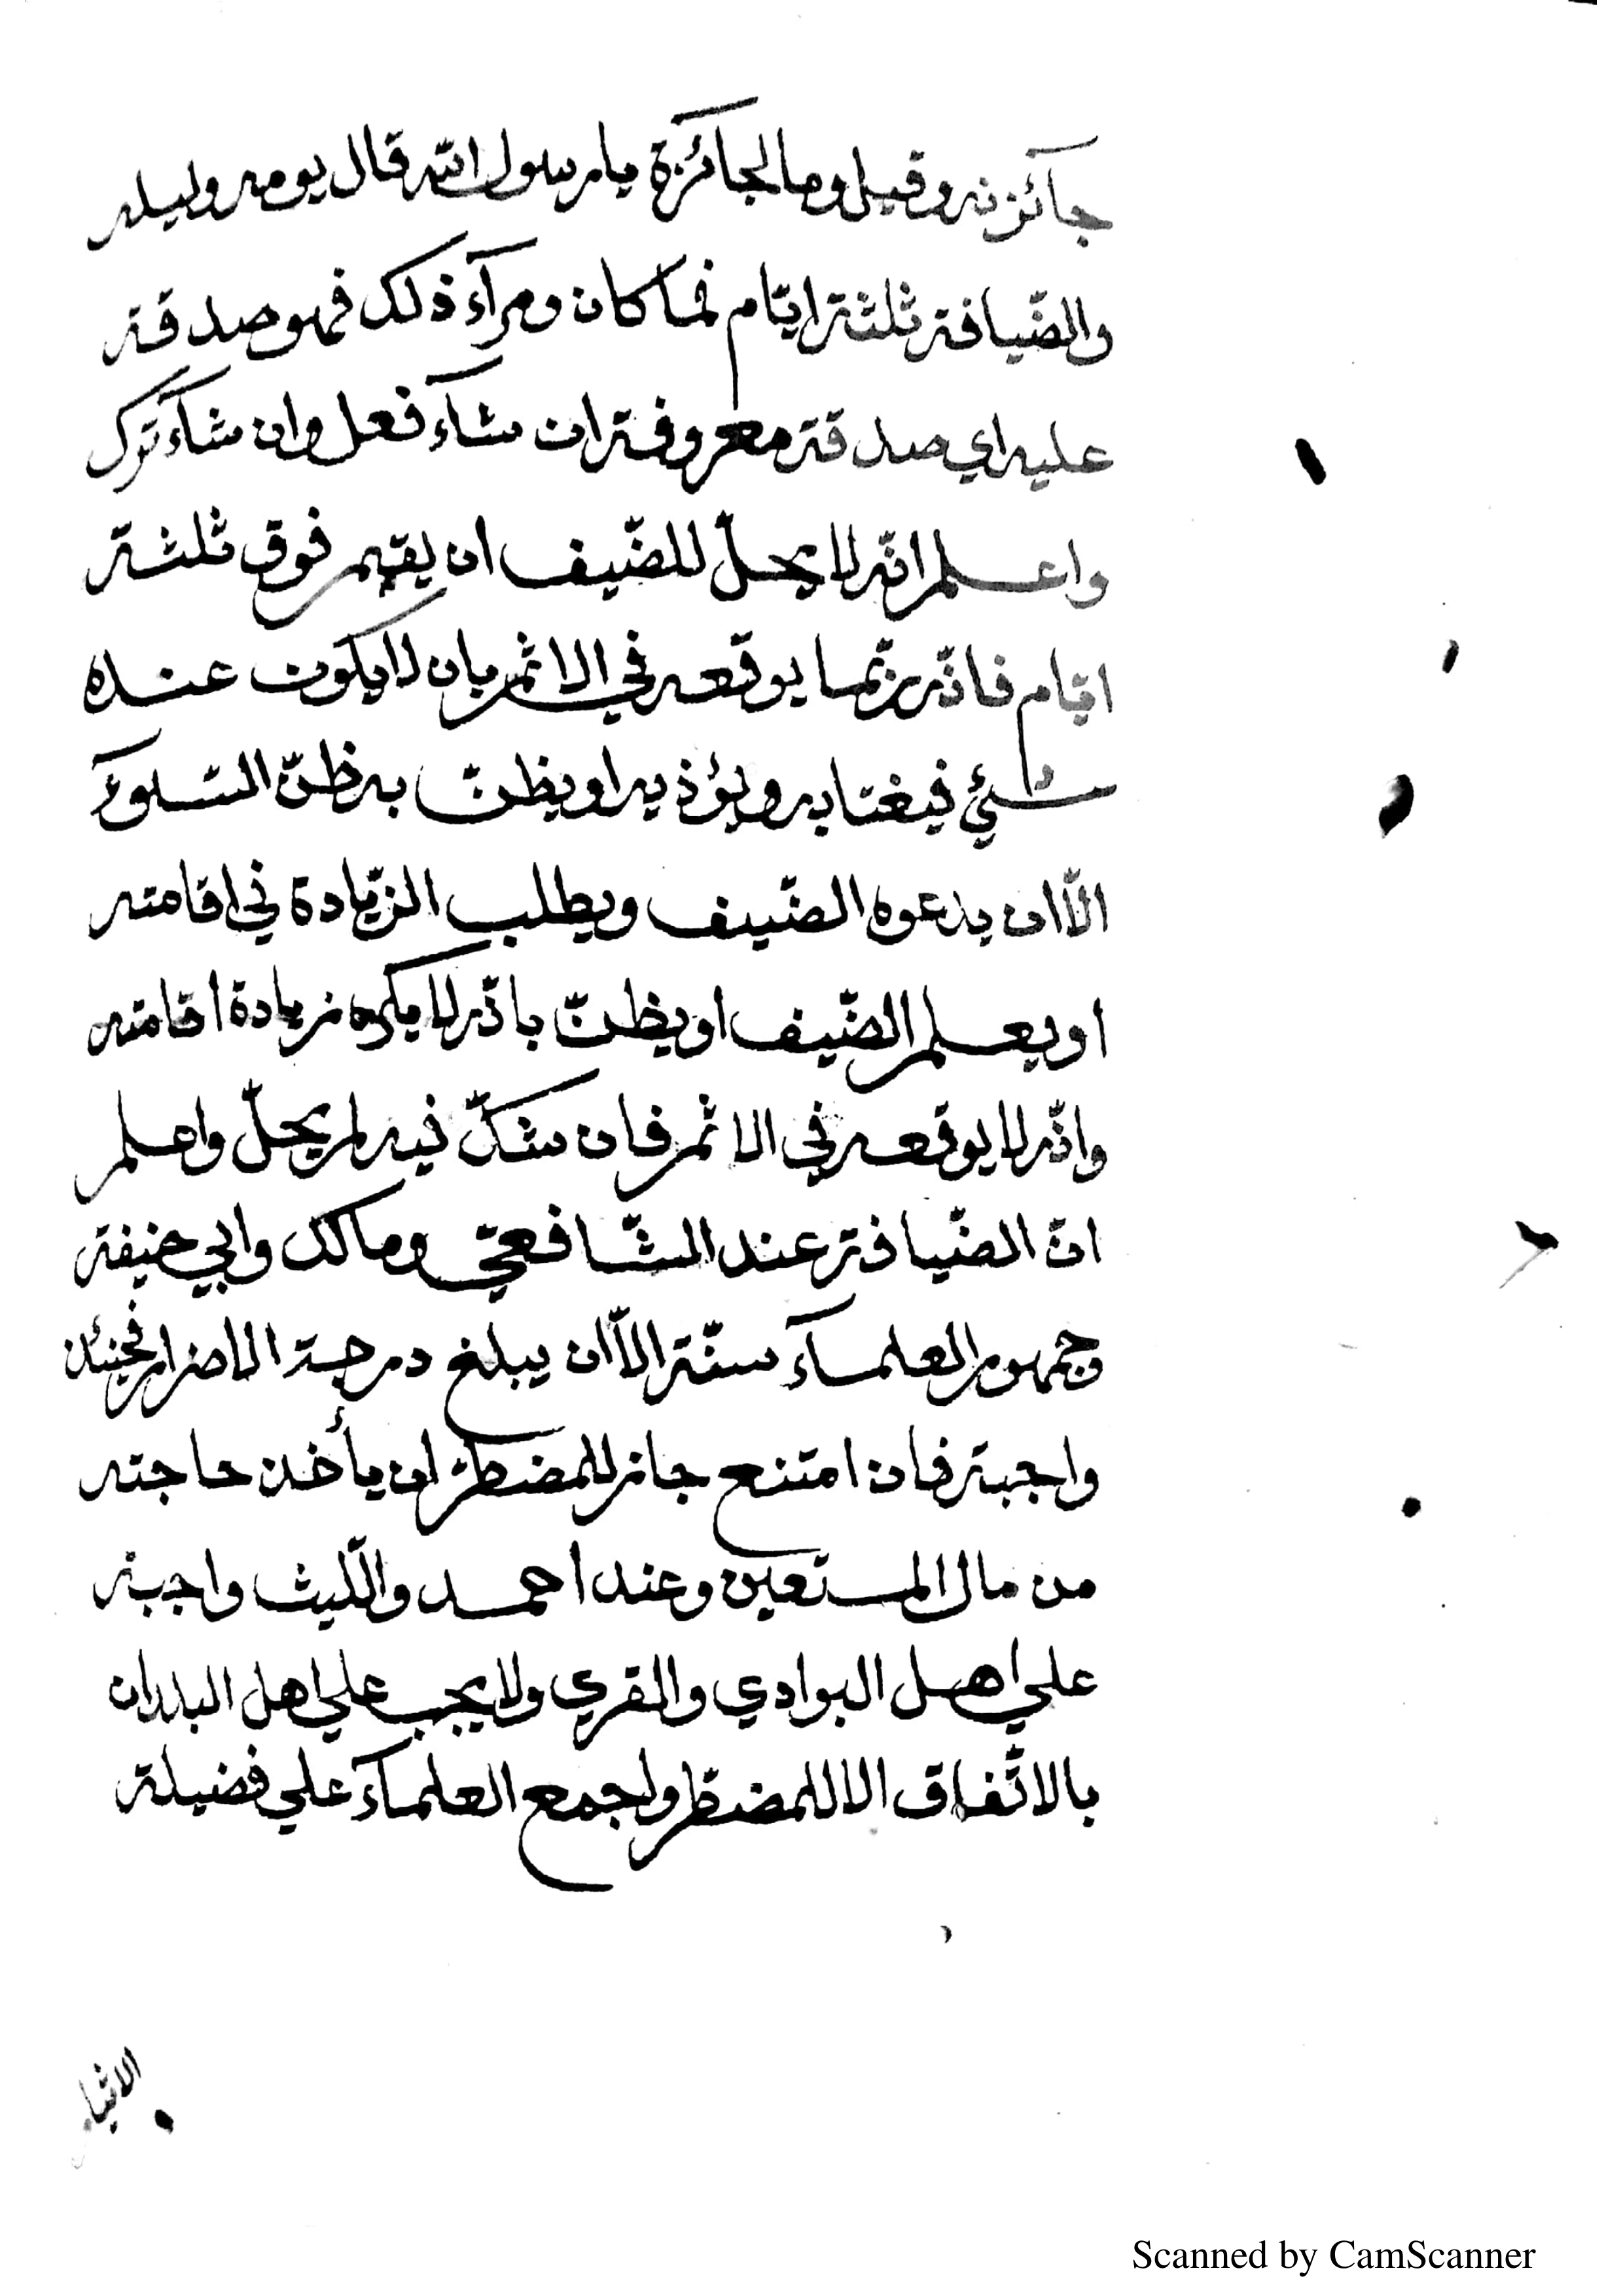 جآئزته وقيل وما الجائزة يا رسول الله قال يومه وليله
والضّيافة ثلثة ايّام فما كان ورآء ذلك فهو صدقة
عليه اي صدقة معروفة ان شآء فعل وان شآء ترك
واعلم انّه لا يحلّ للضّيف ان يقيم فوق ثلثة
ايّام فانّه ربّما يوقعه في الاثم بان لا يكون عنده
شئي فيغتابه ويؤذيه او يظنّ به ظنّ السّوء
الّا ان يدعوه الضّيف ويطلب الزّيادة في اقامته
او يعلم الضّيف او يظنّ بانّه لا يكره زيادة اقامته
وانّه لا يوقعه في الاثم فان شكّ فيه لم يحلّ واعلم
انّ الضّيافة عند الشّافعيّ ومالك وابي حنيفة
وجمهور العلمآء سنّة الّا ان يبلغ درجة الاضرار فحينئذ
واجبة فان امتنع جاز للمضطرّ ان يأخذ حاجته
من مال المستعين وعند احمد واللّيث واجبة
علي اهل البوادي والقري ولا يجب علي اهل البلدان
بالاتّفاق الا للمضطرّ واجمع العلمآء علي فضيلة
Scanned by CamScanner